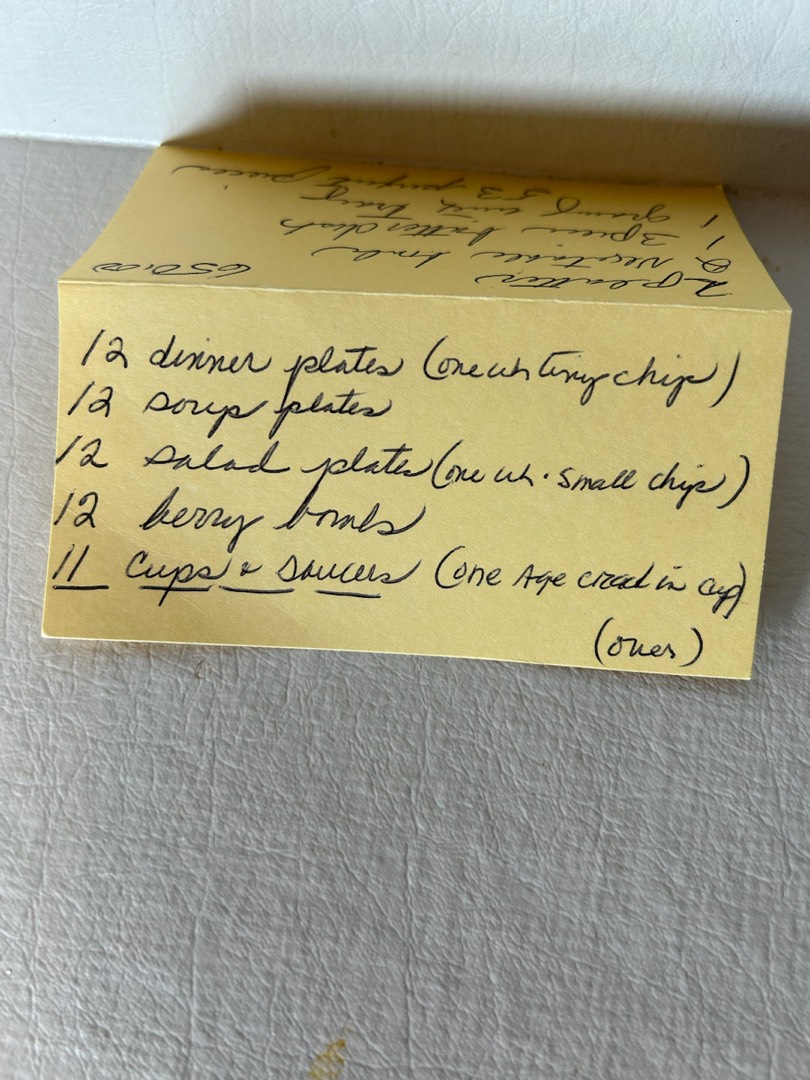 12 dinner plates (one wh tiny chip)
12 soup plates
12 salad plates (one wh. small chip)
12 berry bowls
11 cups & saucers (one age crack in cup)
(over)
2 platters 650.00
2 vegetable bowls
1 3 piece butter dish
1 gravy with tray 53 pieces